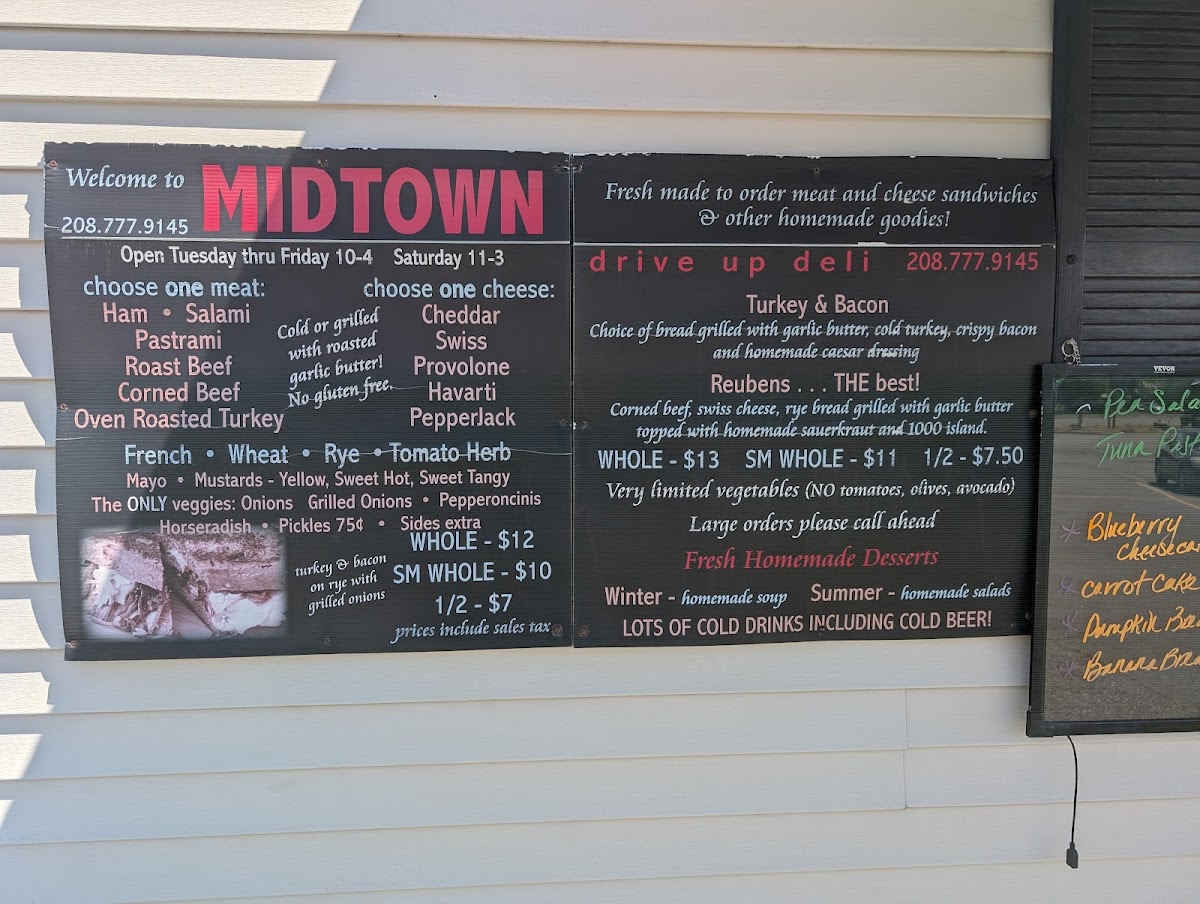 Welcome to MIDTOWN
208.777.9145
Open Tuesday thru Friday 10-4 Saturday 11-3
choose one meat:
Ham • Salami
Pastrami
Roast Beef
Corned Beef
Oven Roasted Turkey
Cold or grilled
with roasted
garlic butter!
No gluten free.
choose one cheese:
Cheddar
Swiss
Provolone
Havarti
PepperJack
French • Wheat • Rye • Tomato Herb
Mayo • Mustards - Yellow, Sweet Hot, Sweet Tangy
The ONLY veggies: Onions Grilled Onions • Pepperoncinis
Horseradish • Pickles 75¢ • Sides extra
turkey & bacon
on rye with
grilled onions
WHOLE - $12
SM WHOLE - $10
1/2 - $7
prices include sales tax
Fresh made to order meat and cheese sandwiches
& other homemade goodies!
drive up deli 208.777.9145
Turkey & Bacon
Choice of bread grilled with garlic butter, cold turkey, crispy bacon
and homemade caesar dressing
Reubens . . . THE best!
Corned beef, swiss cheese, rye bread grilled with garlic butter
topped with homemade sauerkraut and 1000 island.
WHOLE - $13 SM WHOLE - $11 1/2 - $7.50
Very limited vegetables (NO tomatoes, olives, avocado)
Large orders please call ahead
Fresh Homemade Desserts
Winter - homemade soup Summer - homemade salads
LOTS OF COLD DRINKS INCLUDING COLD BEER!
VEVOR
Pea Sala
Tuna Past
Blueberry
Cheeseca
Carrot Cake
Pumpkin Bre
Banana Brea